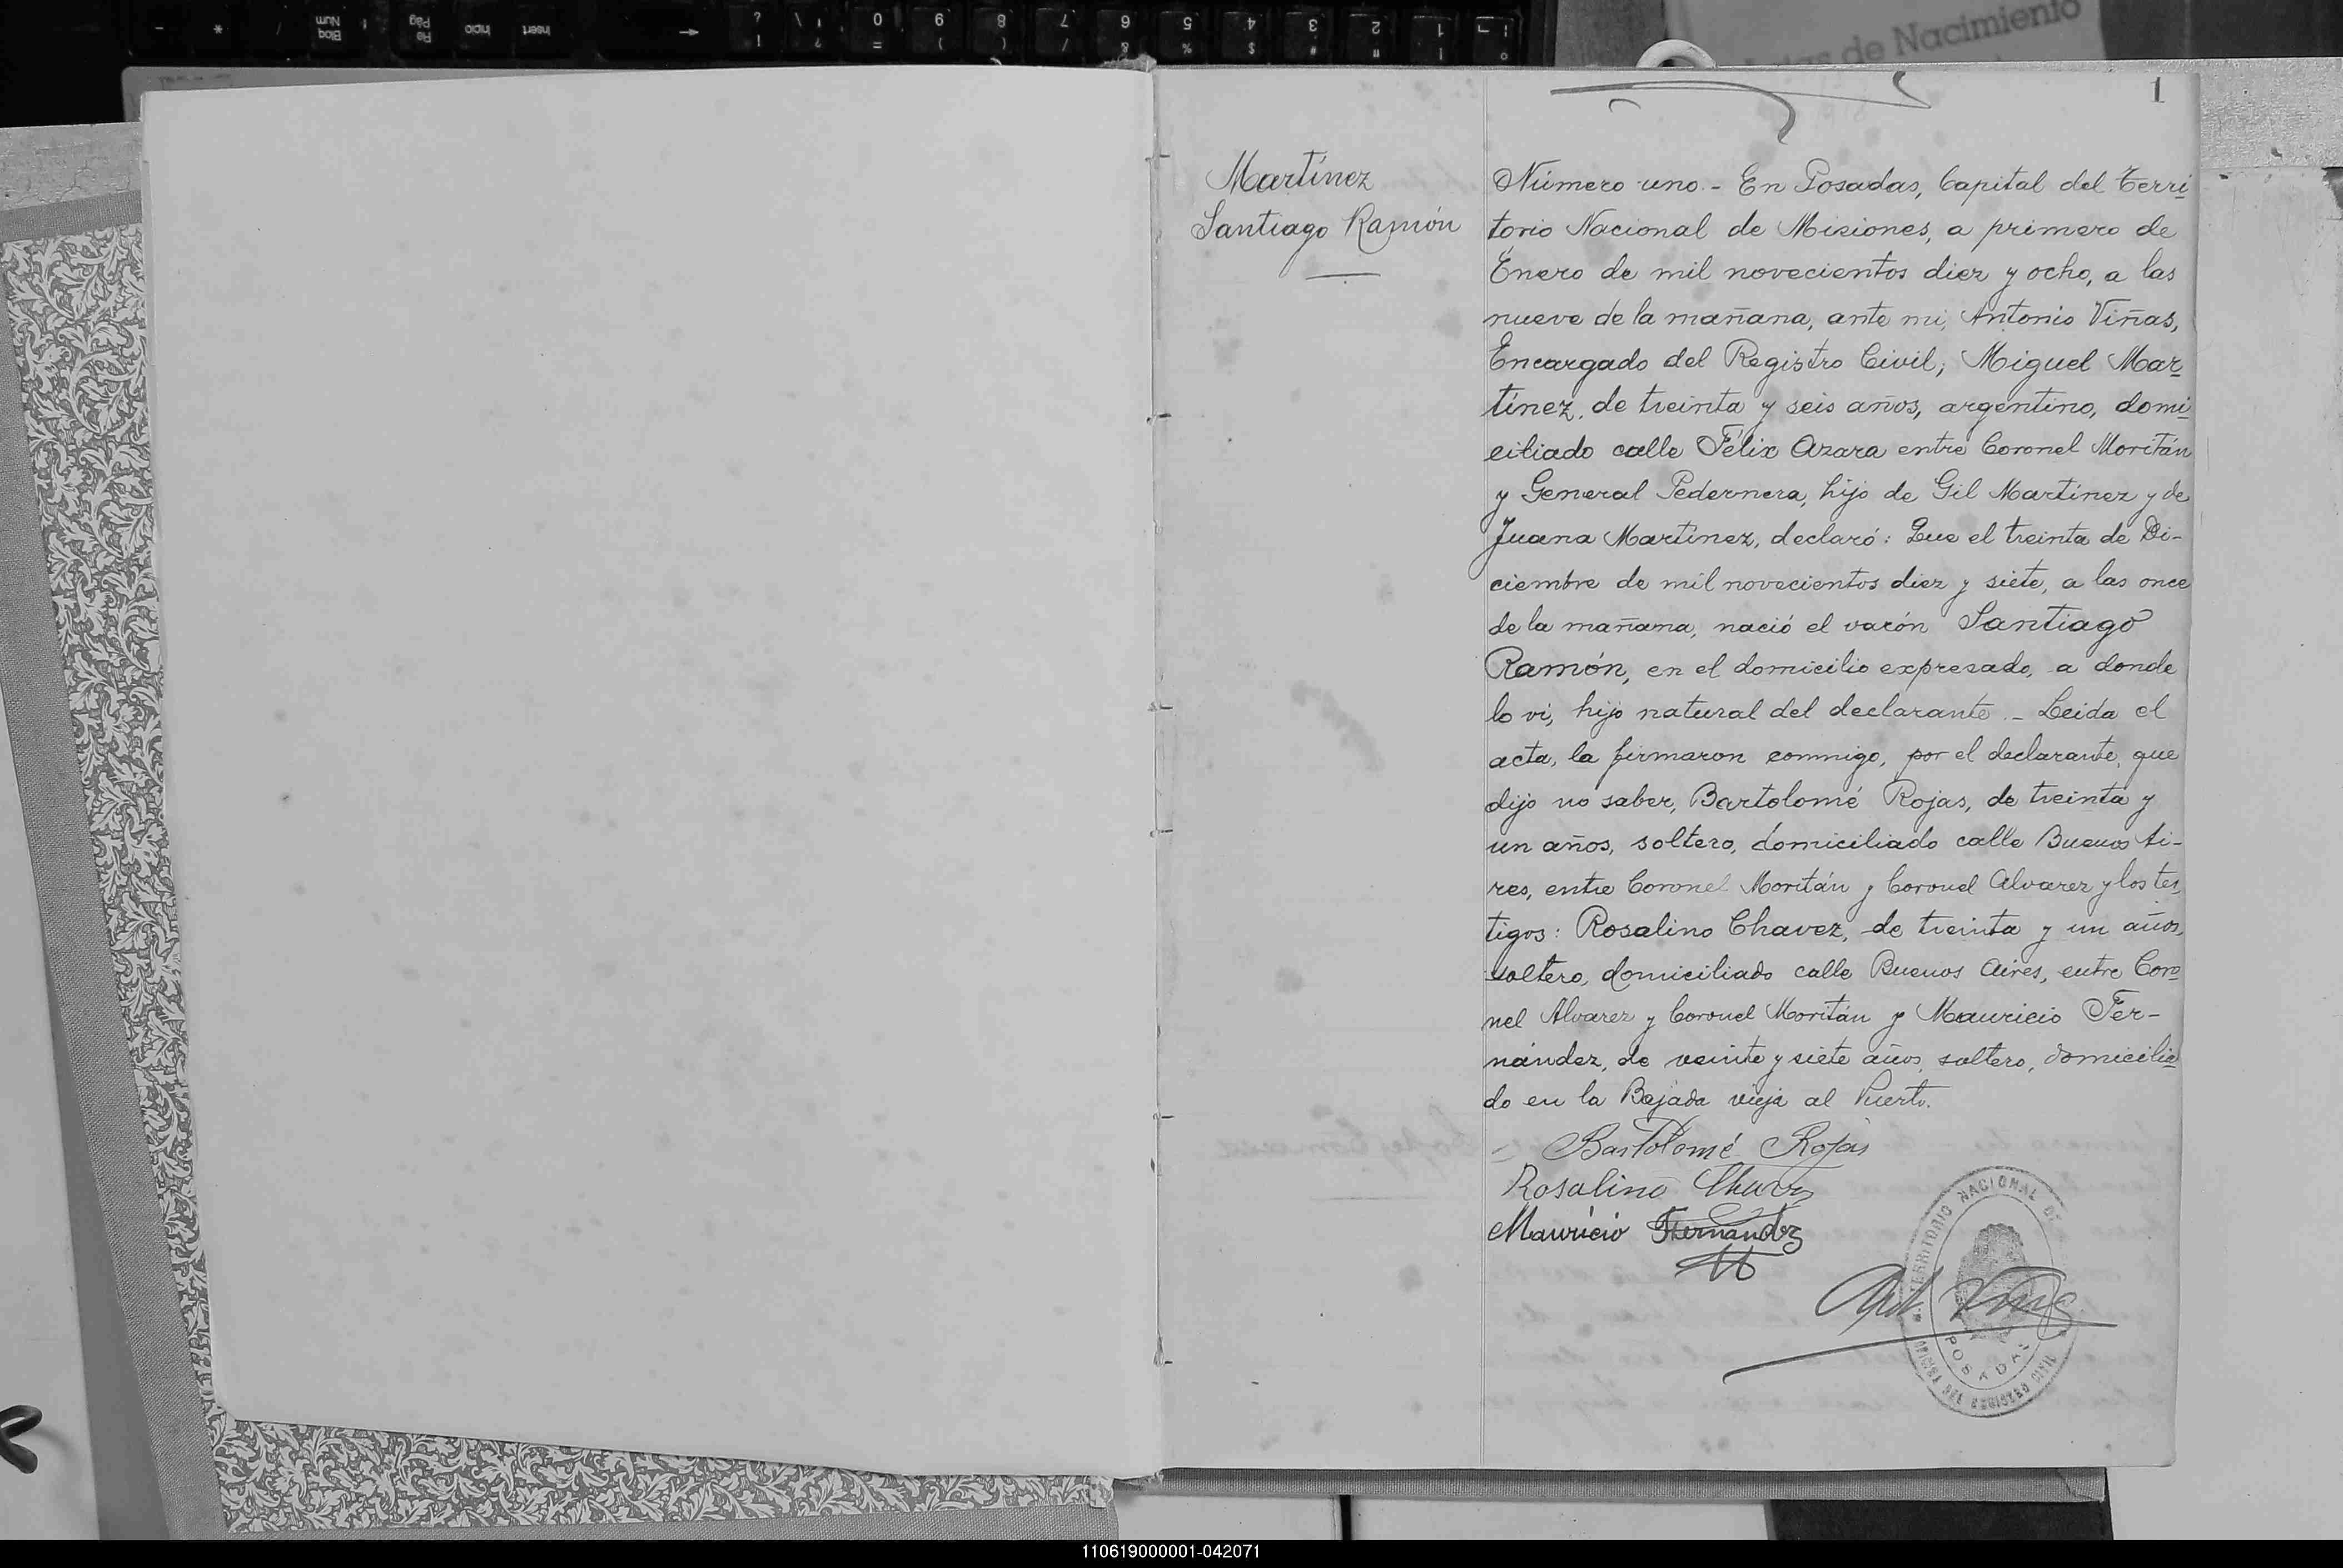 de Nacimiento
1
Martínez
Santiago Ramón
Número uno.- En Posadas, Capital del Terri
torio Nacional de Misiones, a primero de
Enero de mil novecientos diez y ocho, a las
nueve de la mañana, ante mi, Antonio Viñas,
Encargado del Registro Civil; Miguel Mar
tínez, de treinta y seis años, argentino, domi
ciliado calle Félix Azara entre Coronel Moritán
y General Pedernera, hijo de Gil Martínez y de
Juana Martínez, declaró: Que el treinta de Di-
ciembre de mil novecientos diez y siete, a las once
de la mañana, nació el varón Santiago
Ramón, en el domicilio expresado, a donde
lo vi, hijo natural del declarante.- Leida el
acta, la firmaron conmigo, por el declarante, que
dijo no saber, Bartolomé Rojas, de treinta y
un años, soltero, domiciliado calle Buenos Ai-
res, entre Coronel Moritán y Coronel Alvarez y los tes
tigos: Rosalino Chavez, de treinta y un años,
soltero, domiciliado calle Buenos Aires, entre Coro
nel Alvarez y Coronel Moritán y Mauricio Fer-
nández, de veinte y siete años, soltero, domicilia
do en la Bajada vieja al Puerto.
Bartolomé Rojas
Rosalino Chavez
Mauricio Fernandez
TERRITORIO NACIONAL DE
POSADAS
OFICINA DEL REGISTRO CIVIL
110619000001-042071